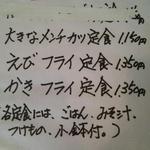 大きなメンチカツ定食 1,150円
えび フライ 定食 1,350円
かき フライ 定食 1,350円
(各定食には、ごはん、みそ汁、
つけもの、小鉢付。)